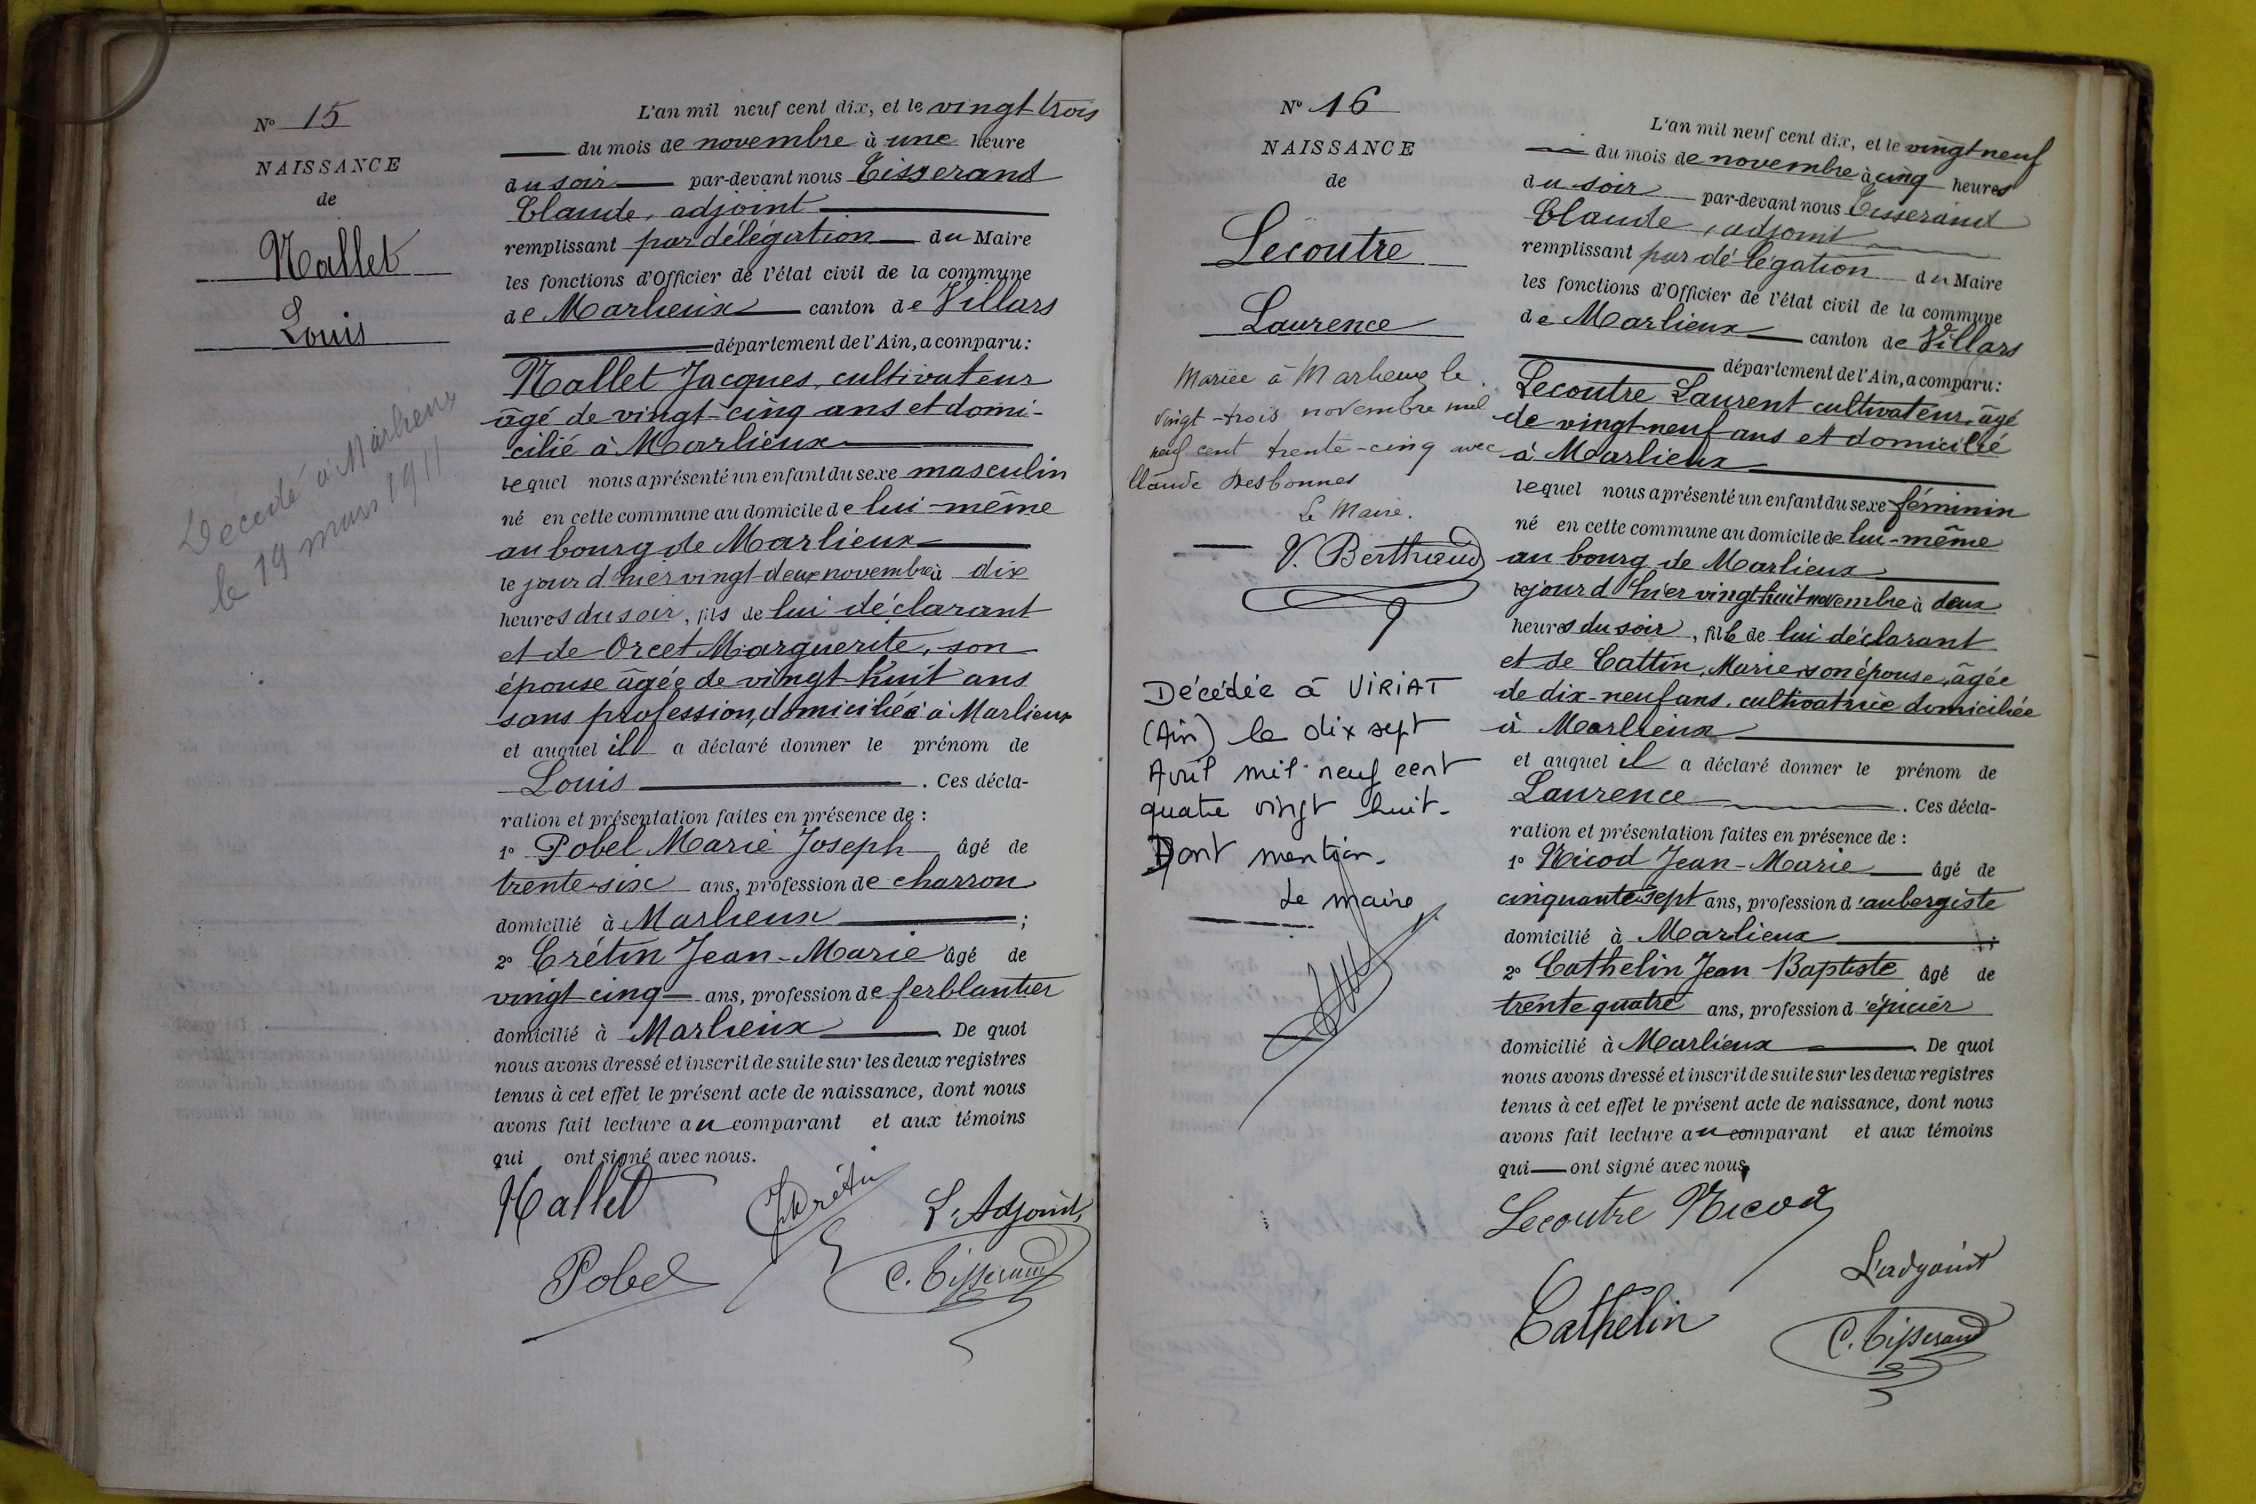 N° 15
NAISSANCE
de
Nallet
Louis
Décédé à Marlieux
le 19 mars 1911
L'an mil neuf cent dix, et le vingt trois
du mois de novembre à une heure
du soir par-devant nous Tisserand
Claude, adjoint
remplissant par délégation du Maire
les fonctions d'Officier de l'état civil de la commune
de Marlieux canton de Villars
département de l'Ain, a comparu :
Nallet Jacques, cultivateur
âgé de vingt-cinq ans et domi-
cilié à Marlieux
lequel nous a présenté un enfant du sexe masculin
né en cette commune au domicile de lui-même
au bourg de Marlieux
le jour d'hier vingt-deux novembre à dix
heures du soir, fils de lui déclarant
et de Orcet Marguerite, son
épouse âgée de vingt-huit ans
sans profession, domiciliée à Marlieux
et auquel il a déclaré donner le prénom de
Louis . Ces décla-
ration et présentation faites en présence de :
1° Pobel Marie Joseph âgé de
trente-six ans, profession de charron
domicilié à Marlieux ;
2° Crétin Jean-Marie âgé de
vingt cinq ans, profession de ferblantier
domicilié à Marlieux De quoi
nous avons dressé et inscrit de suite sur les deux registres
tenus à cet effet le présent acte de naissance, dont nous
avons fait lecture au comparant et aux témoins
qui ont signé avec nous.
Nallet JCrétin L'Adjoint,
Pobel C. Tisserand
N° 16
NAISSANCE
de
Lecoutre
Laurence
Mariée à Marlieux le
vingt-trois novembre mil
neuf cent trente-cinq avec
Claude Desbonnes
Le Maire.
V. Berthoud
Décédée à VIRIAT
(Ain) le dix sept
Avril mil neuf cent
quatre vingt huit.
Dont mention.
Le maire
L'an mil neuf cent dix, et le vingt neuf
du mois de novembre à cinq heures
du soir par-devant nous Tisserand
Claude, adjoint
remplissant par délégation du Maire
les fonctions d'Officier de l'état civil de la commune
de Marlieux canton de Villars
département de l'Ain, a comparu :
Lecoutre Laurent cultivateur, âgé
de vingt neuf ans et domicilié
à Marlieux
lequel nous a présenté un enfant du sexe féminin
né en cette commune au domicile de lui-même
au bourg de Marlieux
le jour d'hier vingt huit novembre à deux
heures du soir, fille de lui déclarant
et de Cattin, Marie son épouse, âgée
de dix-neuf ans, cultivatrice domiciliée
à Marlieux
et auquel il a déclaré donner le prénom de
Laurence . Ces décla-
ration et présentation faites en présence de :
1° Nicod Jean-Marie âgé de
cinquante sept ans, profession d'aubergiste
domicilié à Marlieux ;
2° Cathelin Jean-Baptiste âgé de
trente quatre ans, profession d'épicier
domicilié à Marlieux De quoi
nous avons dressé et inscrit de suite sur les deux registres
tenus à cet effet le présent acte de naissance, dont nous
avons fait lecture au comparant et aux témoins
qui ont signé avec nous.
Lecoutre Nicod
L'adjoint
Cathelin C. Tisserand